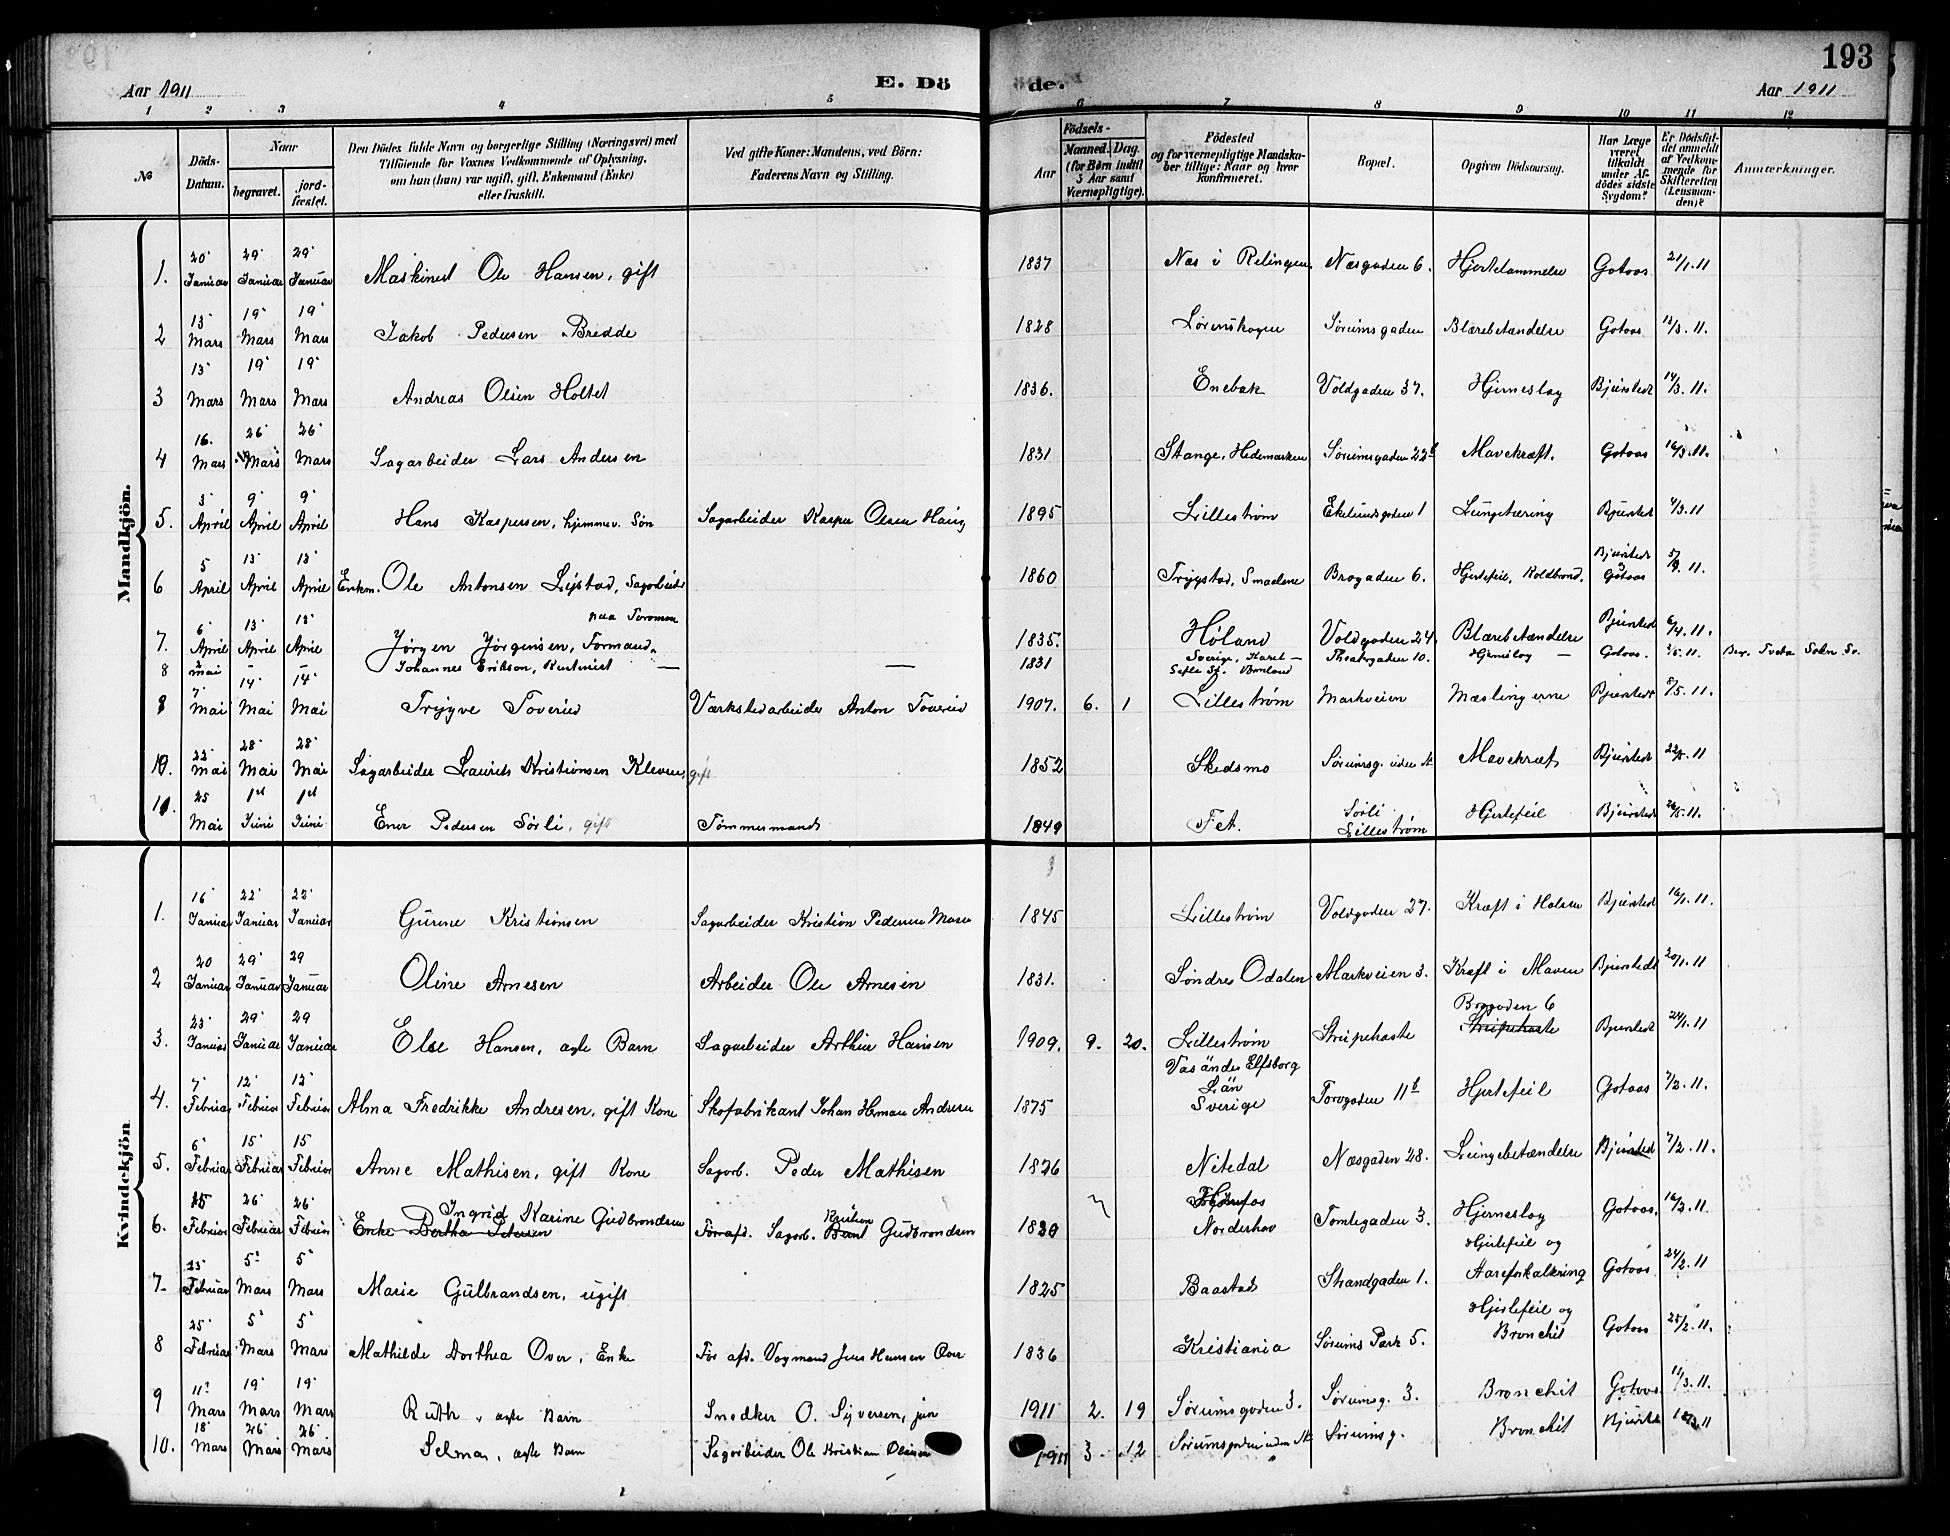 193
Aar 1911
E. Dö
de.
Aar 1911
1 2 3 4 5 6 7 8 9 10 11 12
No
Döds-Datum.
Naar
begravet.
jord-fæstet.
Den Dödes fulde Navn og borgerlige Stilling (Næringsvei) med
Tilföiende for Voxnes Vedkommende af Oplysning,
om han (hun) var ugift, gift, Enkemand (Enke)
eller fraskilt.
Ved gifte Koner: Mandens, ved Börn:
Faderens Navn og Stilling.
Födsels-
Aar
Maaned. Dag.
(for Börn indtil
5 Aar samt
Værnepligtige).
Födested
og for værnepligtige Mandska-
ber tillige: Naar og hvor
konfirmeret.
Bopæl.
Opgiven Dödsaarsag.
Har Læge
været
tilkaldt
under Af-
dödes sidste
Sygdom?
Er Dödsfal-
det anmeldt
af Vedkom-
mende for
Skifteretten
(Lensman-
den)?
Anmærkninger.
Mandkjön.
1. 20 Januar 29 Januar 29 Januar Maskinist Ole Hansen, gift 1837 Næs i Relingen Næsgaden 6. Hjertelammelse Gotaas 21/1.11
2 13 Mars 19 Mars 19 Mars Jakob Pedersen Bredde 1828 Lørenskogen Sørumsgaden Blærebetændelse Gotaas 13/3.11.
3 13 Mars 19 Mars 19 Mars Andreas Olsen Holtet 1836. Enebak Voldgaden 37. Hjerneslag Bjørstedt 14/3.11.
4 16. Mars 26 Mars 26 Mars Sagarbeider Lars Andersen 1831 Stange, Hedemarken Sørumsgaden 22b Mavekræft. Gotaas 16/3.11.
5. 3 April 9 April 9 April Hans Kaspersen, hjemmev. Søn Sagarbeider Kasper Olsen Haug 1895 Lillestrøm Ekelundsgaden 1 Lungetæring Bjørstedt 4/3.11
6 5 April 13 April 13 April Enkm. Ole Antonsen Lystad, Sagarbeider 1860 Trygstad, Smaalene Brogaden 6. Hjertefeil, Koldbrand. Bjørstedt Gotaas 5/4.11.
7. 6 April 13 April 13 April Jørgen Jørgensen, Formand paa Toromsen 1835. Høland Voldgaden 24 Blærebetændelse Bjørstedt 6/4.11.
8 2 mai – – Johannes Erikson, Rentnist — — 1831 Sverige, Karel – Theatergaden 10. Hjerneslag — Gotaas. 2/5.11.
7 Mai 14 Mai 14 Mai Trygve Toverud Værkstedarbeider Anton Toverud 1907. 6. 1 Lillestrøm Markveien Mæslingerne Bjørstedt 8/5.11.
10. 22 Mai 28 Mai 28 Mai Sagarbeider Laurits Kristiansen Kleven, gift 1852 Skedsmo Sørumsg. uden No Mavekræft Bjørstedt 22/5.11
11. 25 Mai 1st Juni 1st Juni Ener Pedersen Sörli, gift Tømmermand 1849 Fet. Sørli Lillestrøm Hjertefeil Bjørstedt 26/5.11.
Kvindekjön
1. 16 Januar 22 Januar 22 Januar Gurine Kristiansen Sagarbeider Kristian Pedersen Moser 1845 Lillestrøm Voldgaden 27. Kræft i Halsen Bjørstedt 16/1.11.
2 20 Januar 29 Januar 29 Januar Oline Arnesen Arbeider Ole Arnesen 1831. Søndre Odalen Markveien 3. Kræft i Maven Bjørstedt 20/1.11
3. 23 Januar 29 Januar 29 Januar Else Hansen, ægte Barn Sagarbeider Arthur Hansen 1909. 9. 20. Lillestrøm Strupehoste Brogaden 6 Strupehoste Bjørstedt 24/1.11
4. 7 Februar 12 Februar 12 Februar Alma Fredrikke Andresen, gift Kone Skofabrikant Johan Herman Andresen 1875 Vasänder Elfsborg Län Sverige Torvgaden 11b Hjertefeil Gotaas 7/2.11.
5. 6 Februar 15 Februar 15 Februar Anne Mathisen, gift Kone Sagarb. Peder Mathisen 1826 Nitedal Næsgaden 28. Lungebetændelse Bjørstedt 7/2.11.
6. 15 Februar 26 Februar 26 Februar Ingrid Karine Gudbrandsen Enke Bertha Petersen Forrafd. Sagarb. Kristian Bernt Gudbrandsen 1830 Norderhov Tomtegaden 3. Hjerneslag Gotaas. 16/2.11
7. 23 Februar 5 Mars 5 Mars Marie Gulbrandsen, ugift 1825 Baastad Strandgaden 1. Hjertefeil og Aareforkalkning Gotaas 24/2.11
8 25 Februar 5 Mars 5 Mars Mathilde Dorthea Over, Enke For afd. Vogmand Jens Hansen Over 1836 Kristiania Sørums Park 5. Hjertefeil og Bronchit Gotaas 25/2.11.
9 11 Mars 19 Mars 19 Mars Ruth, ægte Barn Snedker O. Syversen, jun 1911 2. 19 Sørumsgaden 3. Sørumsg. 3. Bronchit Gotaas 11/3.11.
10. 18 Mars 26 Mars 26 Mars Selma, ægte Barn Sagarbeider Ole Kristian Olsen 1911 3. 12 Sørumsgaden uden No Sørumsg. Bronchit Bjørstedt 18/3.11